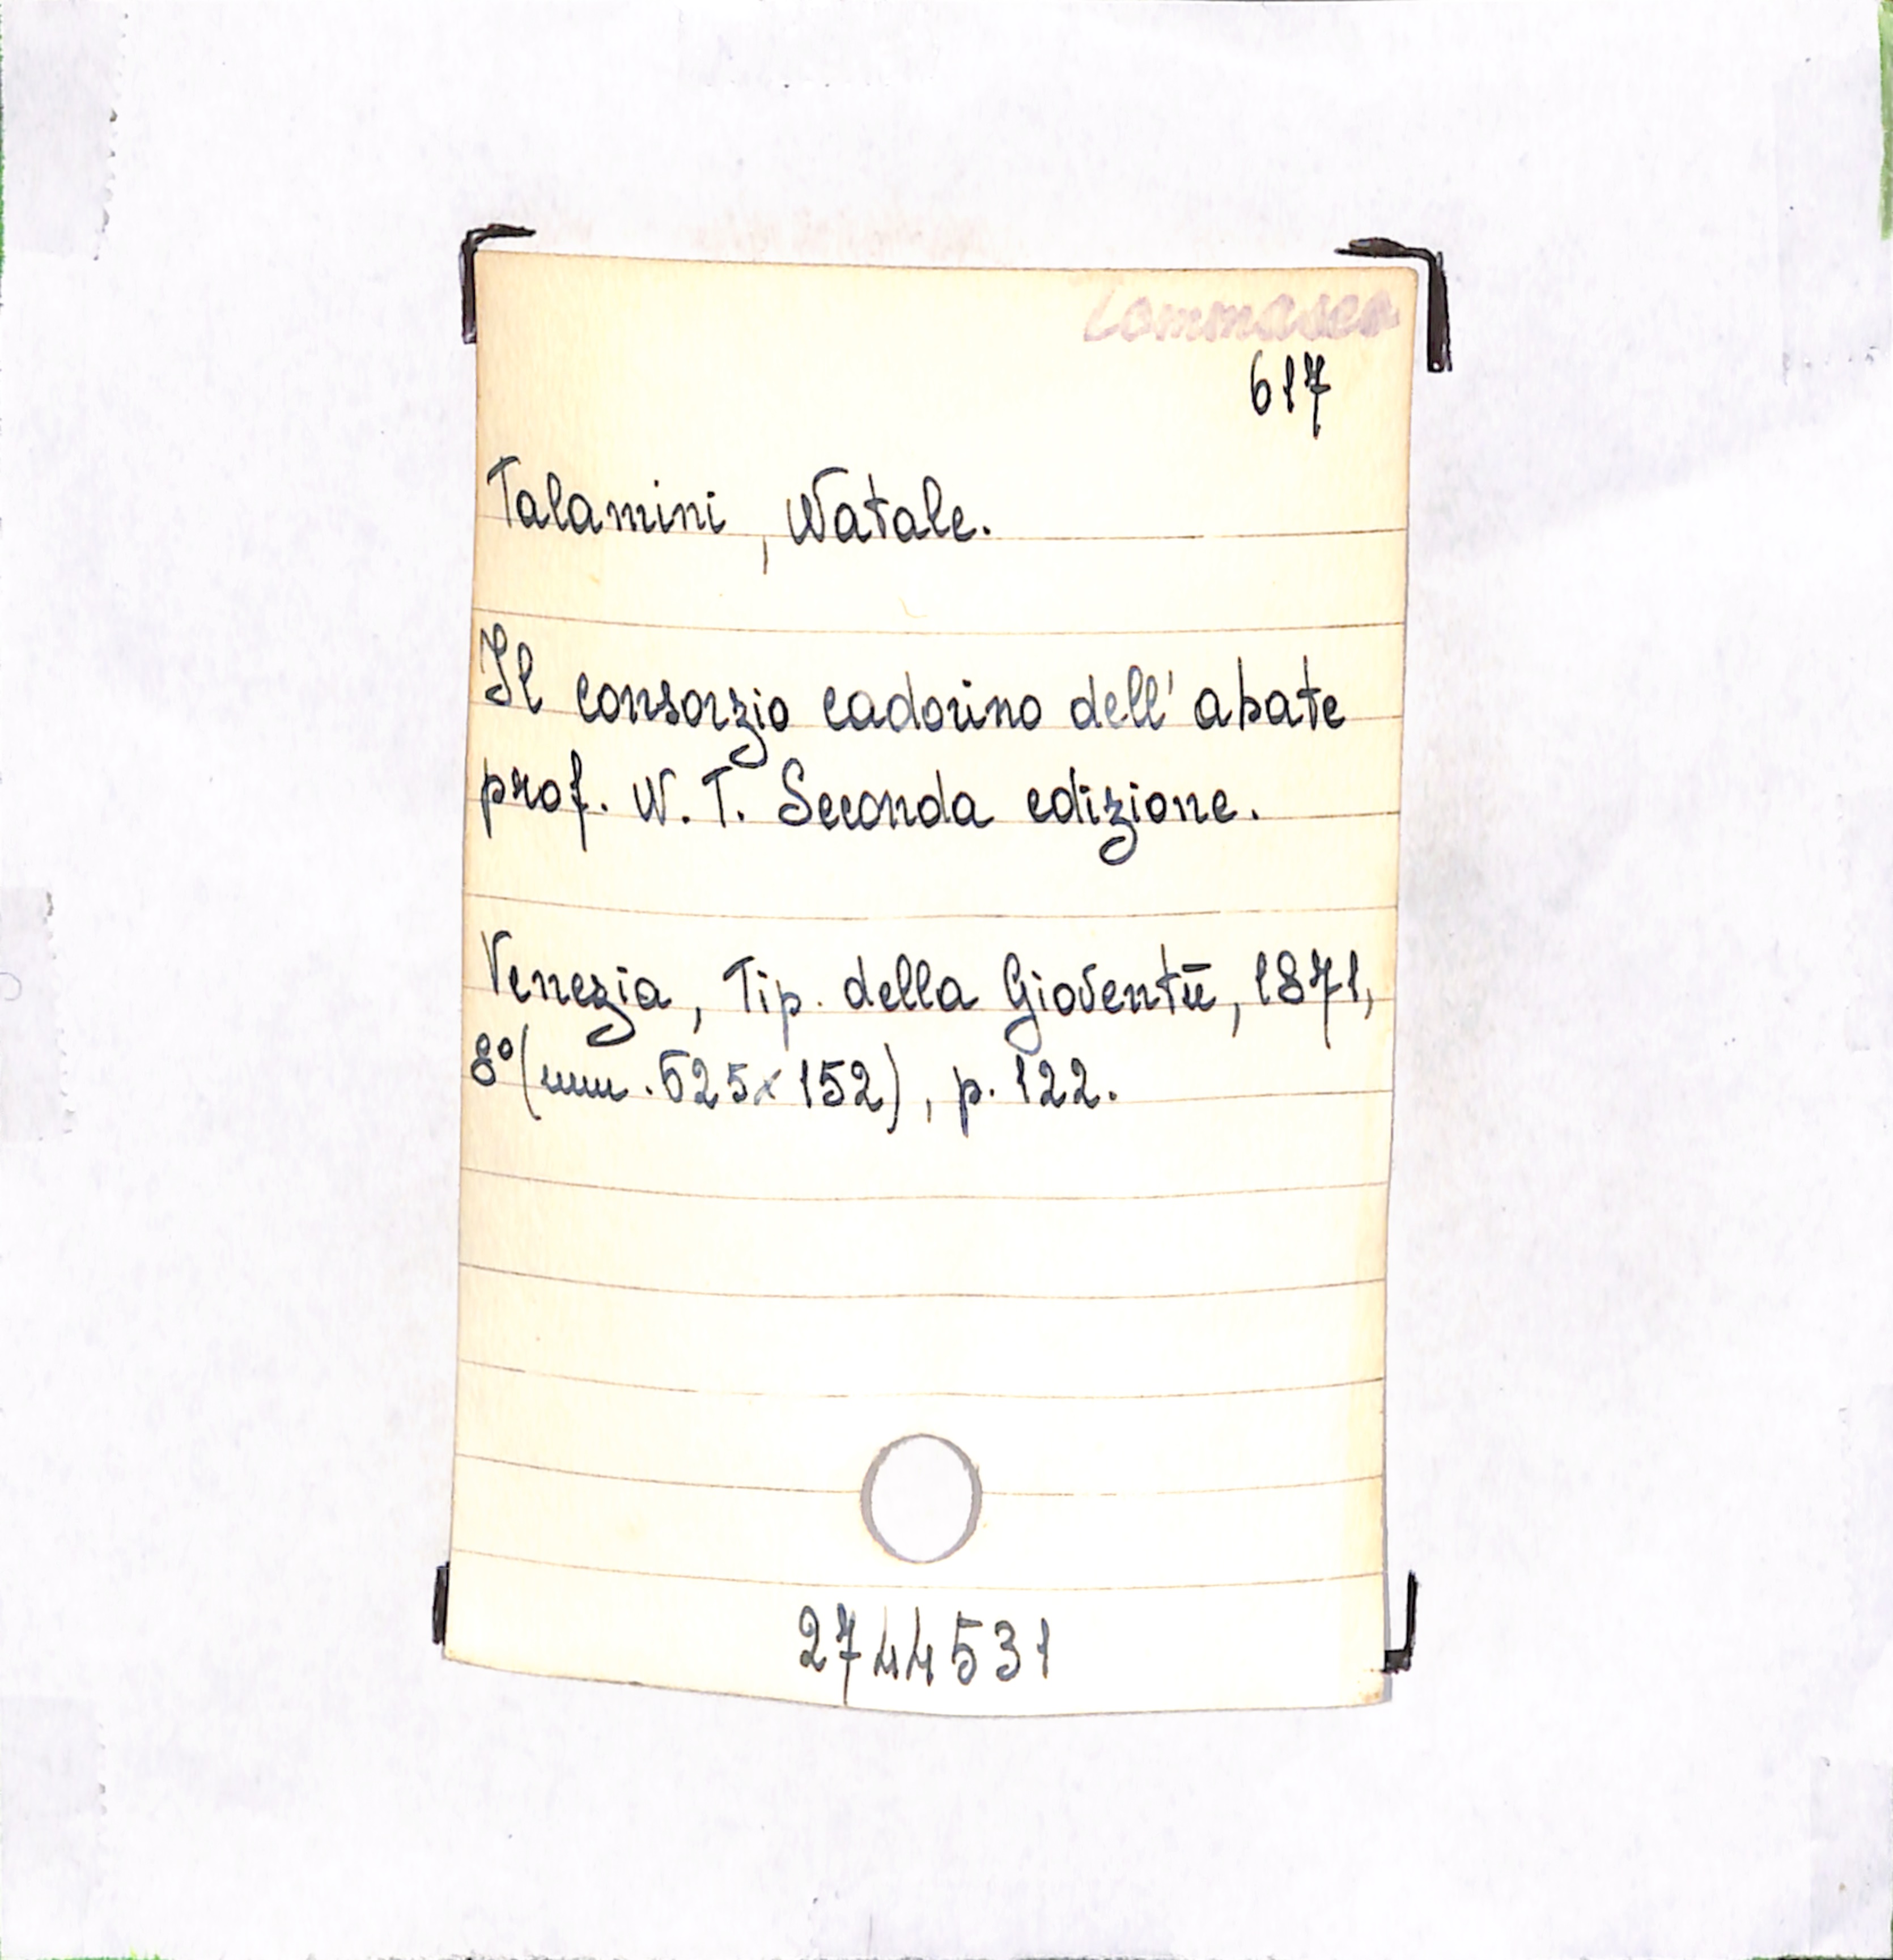 Tommaseo
617
Talamini, Natale.
Il consorzio cadorino dell'abate
prof. N. T. Seconda edizione.
Venezia, Tip. della Gioventū, 1871,
8º (mm. 625x152), p. 122.
2744531